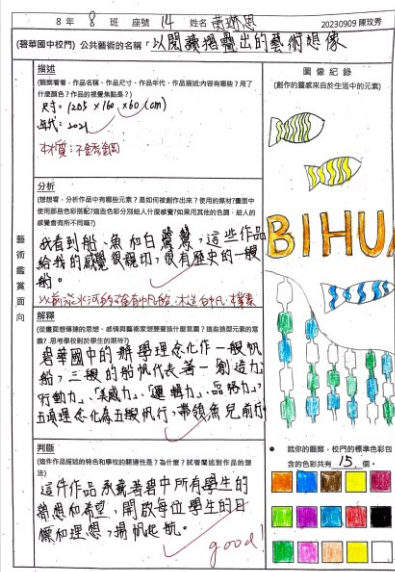 8 年 8 班 座號 14 姓名
20230909 陳玟秀
(碧華國中校門) 公共藝術的名稱:以閱讀摺疊出的藝術想像
描述
(觀察看看,作品名稱、作品尺寸、作品年代、作品描述內容有哪些?用了什麼顏色?作品的視覺焦點是?)
尺寸:1205×160×60(cm)
年代:2021
材質:不銹鋼
分析
(想想看,分析作品中有哪些元素?是如何被創作出來?使用的媒材?畫面中
使用那些色彩搭配?這些色彩分別給人什麼感覺?如果用其他的色調,給人的
感覺會有所不同嗎?)
我看到船、魚和白鷺鷥,這些作品
給我的感覺很親切,像有歷史的一艘
船。
藝術鑑賞面向
解釋
碧華國中的辦學理念化作一艘帆
船,三艘的船帆代表著—創造力
行動力、「美感力」、「邏輯力」、品格力」,
五項理念化為五艘帆行,帶領魚兒前行
判斷
(這件作品描述的特色和學校的關連性是?為什麼?試著闡述對作品的想
法)
這件作品承載著碧中所有學生的
夢想和希望,開啟每位學生的目
標和理想,揚帆起航。
good!
圖像紀錄
(創作的靈感來自於生活中的元素)
BIHUA
● 就你的觀察,校門的標準色彩包
含的色彩共有 15 個。